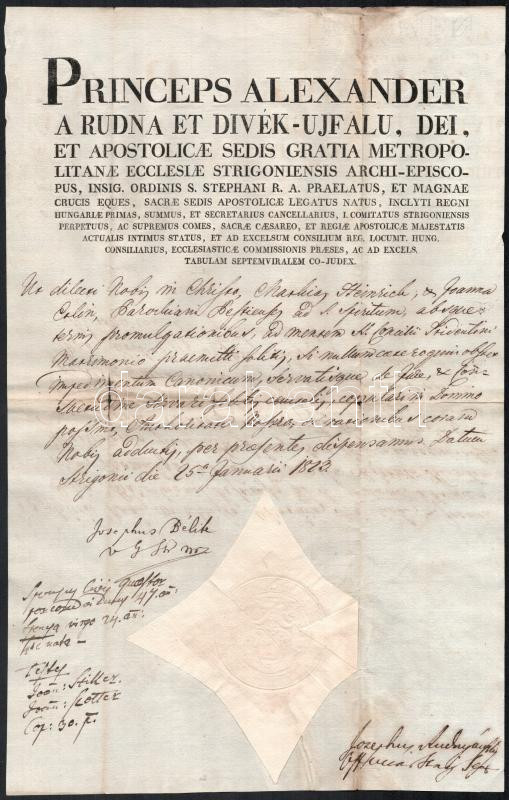 PRINCEPS ALEXANDER
A RUDNA ET DIVÉK-UJFALU, DEI,
ET APOSTOLICÆ SEDIS GRATIA METROPO-
LITANÆ ECCLESIÆ STRIGONIENSIS ARCHI-EPISCO-
PUS, INSIG. ORDINIS S. STEPHANI R. A. PRAELATUS, ET MAGNAE
CRUCIS EQUES, SACRÆ SEDIS APOSTOLICÆ LEGATUS NATUS, INCLYTI REGNI
HUNGARIÆ PRIMAS, SUMMUS, ET SECRETARIUS CANCELLARIUS, I. COMITATUS STRIGONIENSIS
PERPETUUS, AC SUPREMUS COMES, SACRÆ CÆSAREO, ET REGIÆ APOSTOLICÆ MAJESTATIS
ACTUALIS INTIMUS STATUS, ET AD EXCELSUM CONSILIUM REG. LOCUMT. HUNG.
CONSILIARIUS, ECCLESIASTICÆ COMMISSIONIS PRÆSES, AC AD EXCELS.
TABULAM SEPTEMVIRALEM CO-JUDEX.
Ut dilecti Nobis in Christo, Mathias Heinrich, & Joanna
Colin, Parochiani ad S. Spiritum, absque
ternis promulgationibus, ad mentem Tridentini
Matrimonio praemitti solitis, si nullum
impedimentum Canonicum, servatisque de Jure, &
servari, copulari in Domino
possint, rationibus coram
Nobis adductis, per praesentes dispensamus. Datum
Strigonii die 25a Januarii 1823.
Josephus Bélik
47 an:
virgo 24. an:
hic nata –
Testes
Joan: Stiller
Joan: Kotter
Cop: 30. 
Josephus
darabanth